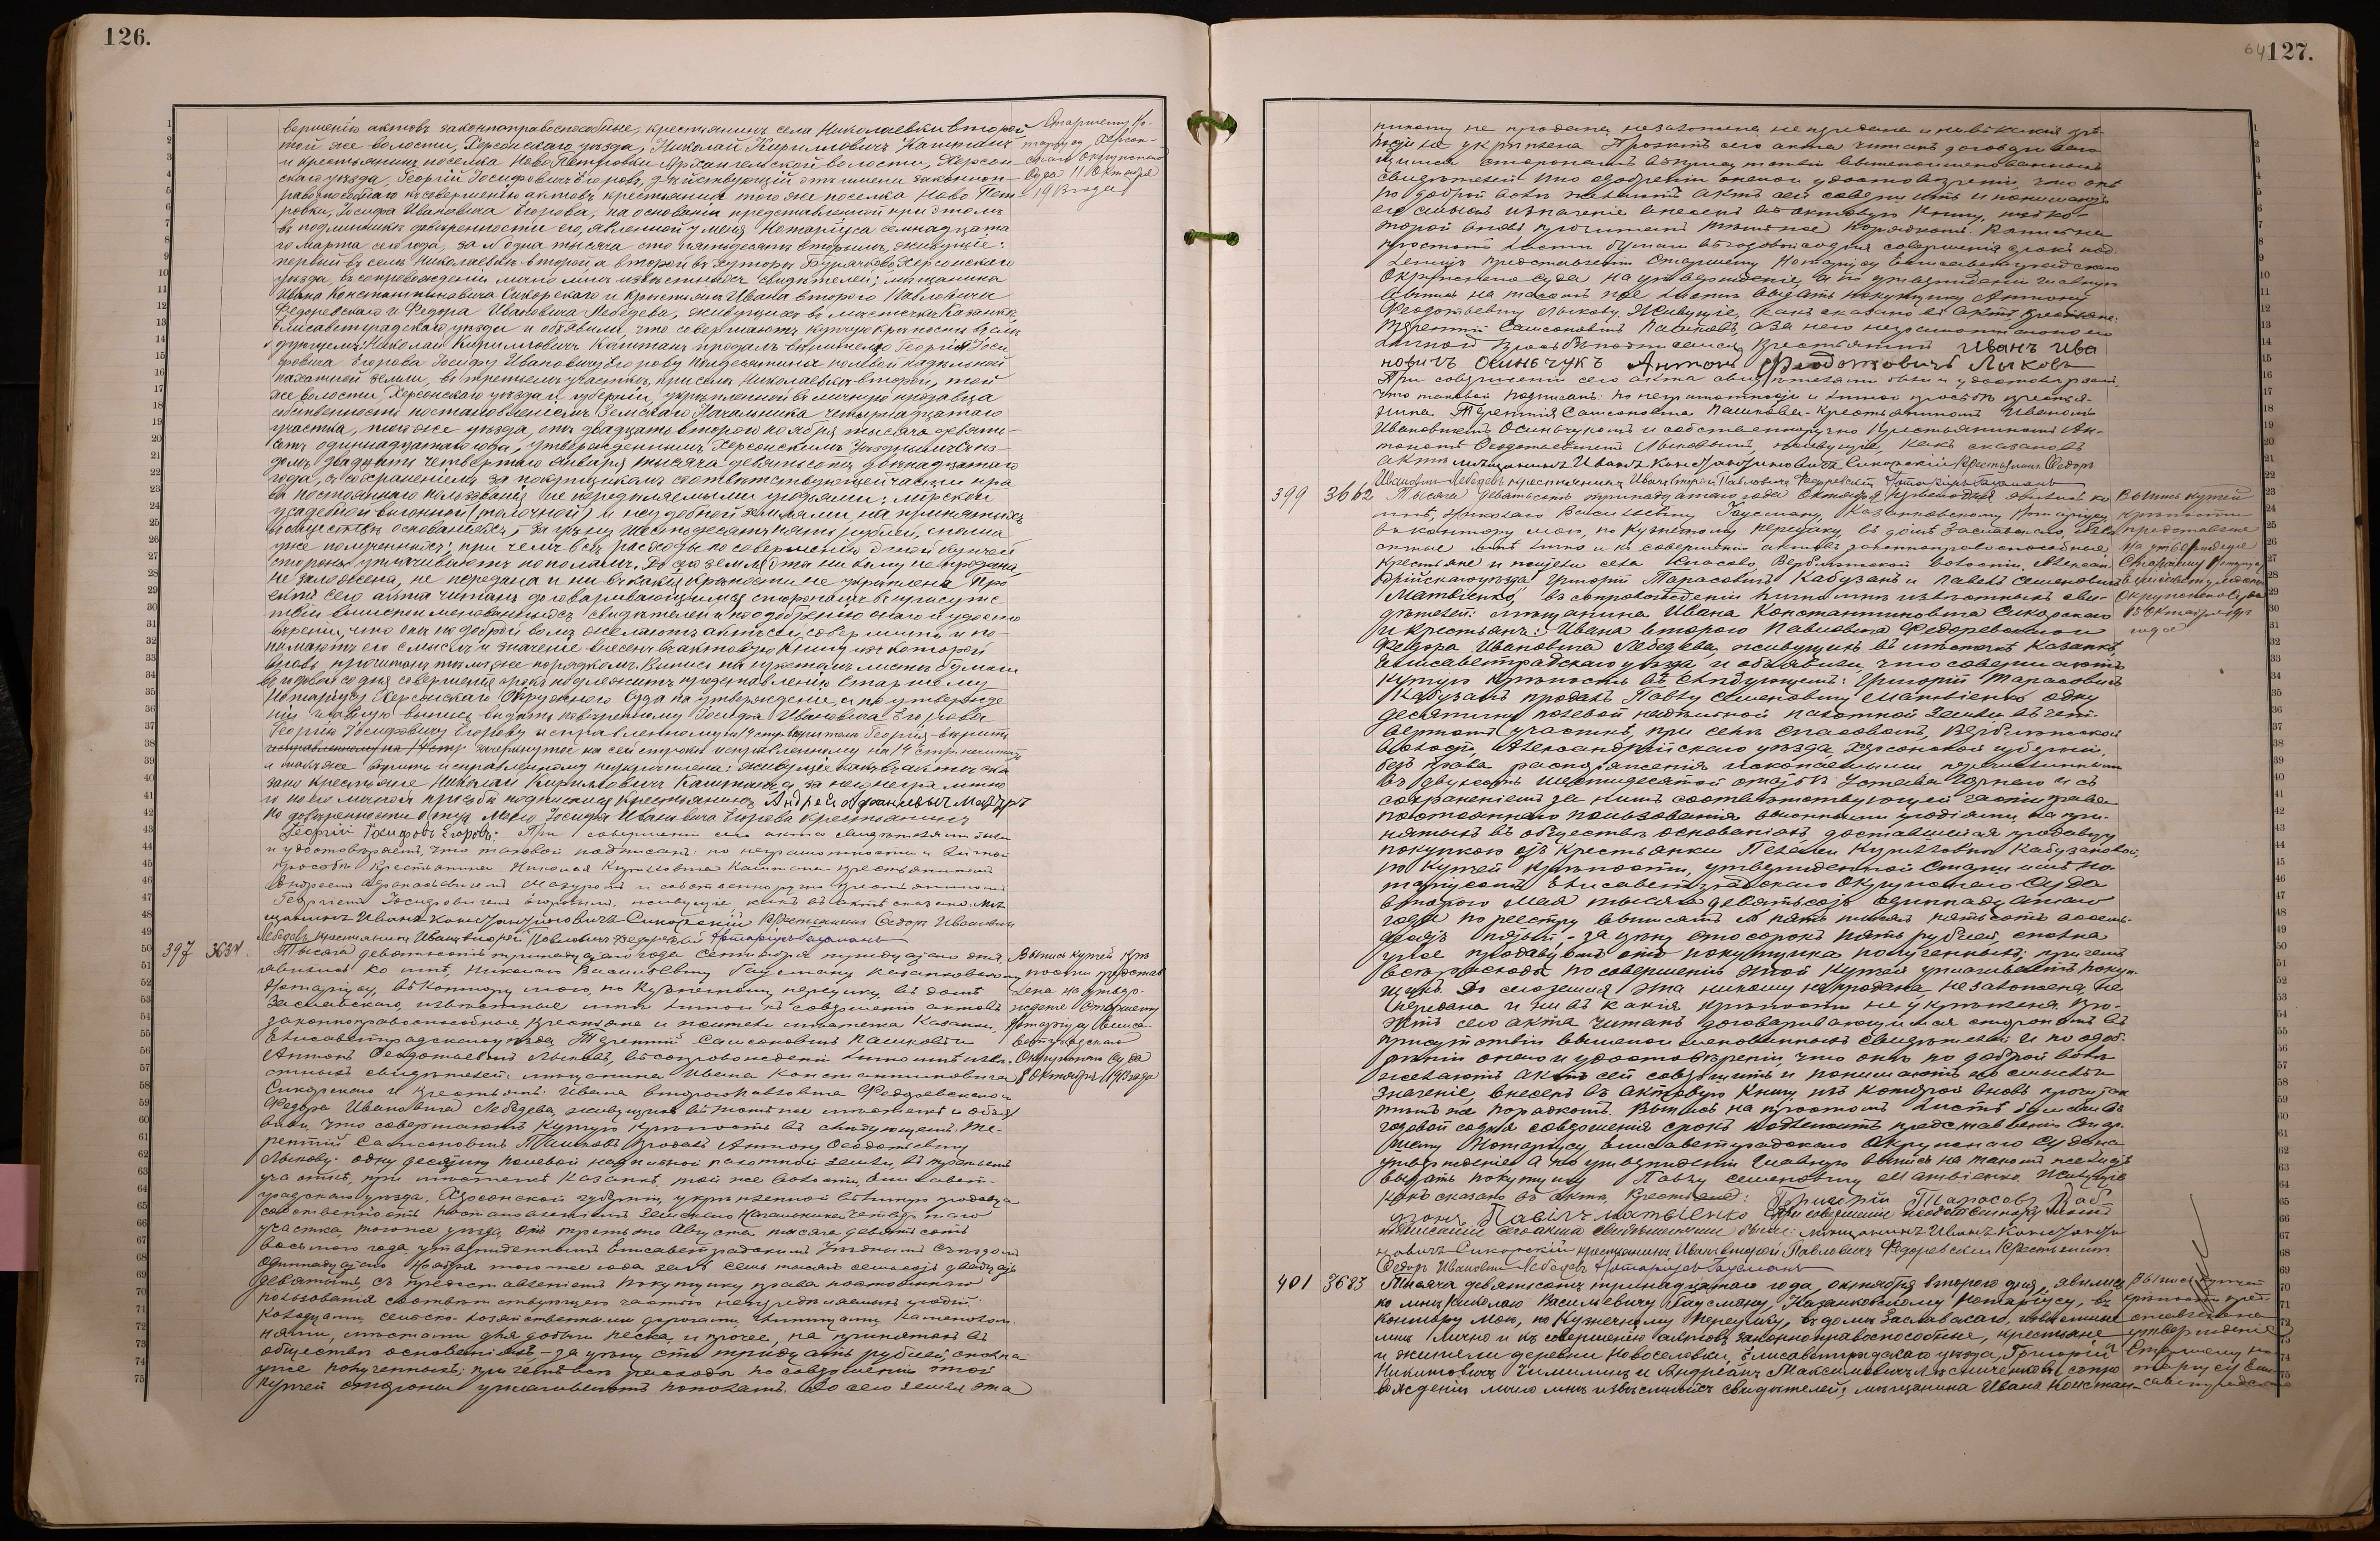 126.
вершенію актовъ законноправоспособные, крестьянинъ села Николаевки второй
той же волости, Херсонскаго уѣзда, Николай Кирилловичъ Каштанъ
и крестьянинъ поселка Ново Петровки Архангельской волости, Херсон-
скаго уѣзда, Георгій Іосифовичъ Егоровъ, дѣйствующій отъ имени законноп-
равоспособнаго къ совершенію актовъ крестьянина того же поселка Ново Пет-
ровки, Іосифа Ивановича Егорова, на основаніи представленной при этомъ
въ подлинникѣ довѣренности его, явленной у меня Нотаріуса семнадцата
го Марта сего года, за № одна тысяча сто пятьдесятъ вторымъ, живущіе:
первый въ селѣ Николаевкѣ-второй, а второй въ хуторѣ Бурячково Херсонскаго
уѣзда, въ сопровожденіи лично мнѣ извѣстныхъ свидѣтелей; мѣщанина
Ивана Константиновича Сикорскаго и крестьянъ Ивана второго Павловича
Федоревскаго и Федора Ивановича Лебедева, живущихъ въ мѣстечкѣ Казанкѣ,
Елисаветградскаго уѣзда и объявили, что совершаютъ купчую крѣпость въ слѣ
дующемъ: Николай Кирилловичъ Каштанъ продалъ вѣрителю Георгія Іоси
фовича Егорова Іосифу Ивановичу Егорову полдесятины полевой надѣльной
пахатной земли, въ третьемъ участкѣ, при селѣ Николаевкѣ второй, той
же волости, Херсонскаго уѣзда и губерніи, укрѣпленной въ личную продавца
собственность постановленіемъ Земскаго Начальника четырнадцатаго
участка, того же уѣзда, отъ двадцать второго ноября тысяча девять-
сотъ одиннадцатаго года, утвержденнымъ Херсонскимъ Уѣзднымъ Съѣз-
домъ двадцать четвертаго января тысяча девятьсотъ двѣнадцатаго
года, съ сохраненіемъ за покупщикомъ соотвѣтствующей части пра
ва постояннаго пользованія не передѣляемыми угодьями: мірской
усадебной выгонной (толочной) и неудобной землями, на принятыхъ
въ обществѣ основаніяхъ, за цѣну шестьдесятъ пять рублей, сполна
уже полученныхъ; при чемъ всѣ расходы по совершенію этой купчей
стороны уплачиваютъ пополамъ. До сего земля эта никому не продана,
не заложена, не передана и ни въ какія крѣпости не укрѣплена. Про
ектъ сего акта читанъ договаривающимся сторонамъ въ присутс
твіи вышепоименованныхъ свидѣтелей и по одобреніи онаго и удосто
вѣреніи, что они по доброй волѣ желаютъ актъ сей совершить и по-
нимаютъ его смыслъ и значеніе внесенъ въ актовую книгу, изъ которой
вновь прочитанъ тѣмъ же порядкомъ. Выпись на простомъ листѣ бумаги
въ годовой со дня совершенія срокъ подлежитъ представленію Старшему
Нотаріусу Херсонскаго Окружнаго Суда на утвержденіе, а по утвержде
ніи главную выпись выдать повѣренному Іосифа Ивановича Егорова
Георгію Іосифовичу Егорову
зано крестьяне Николай Кирилловичъ Каштанъ, а за него неграмотна
го по его личной просьбѣ подписался крестьянинъ Андрей Афанасьевичъ Мазуръ
По довѣренности отца моего Іосифа Ивановича Егорова крестьянинъ
Георгій Іосифовъ Егоровъ: При совершеніи сего акта свидѣтелями были
и удостовѣряемъ, что таковой подписанъ: по неграмотности и личной
просьбѣ крестьянина Николая Кирилловича Каштана крестьяниномъ
Андреемъ Афанасьевичемъ Мазуромъ и собственноручно крестьяниномъ
Георгіемъ Іосифовичемъ Егоровымъ, живущіе, какъ въ актѣ сказано. Мѣ
щанинъ Иванъ Константиновичъ Сикорскій Крестьянинъ Федоръ Ивановичъ
Лебедевъ крестьянинъ Иванъ второй Павловичъ Федоревскій Нотаріусъ Гаусманъ
Старшему Но-
таріусу Херсон-
скаго Окружнаго
Суда 11 Октября
1913 года
397 3634
Тысяча девятьсотъ тринадцатаго года Сентября тридцатаго дня,
явились ко мнѣ, Николаю Васильевичу Гаусману Казанковскому
Нотаріусу, въ контору мою, по Кузнечному переулку, въ домѣ
Заславскаго, извѣстные мнѣ лично и къ совершенію актовъ
законноправоспособные, крестьяне и жители мѣстечка Казанки,
Елисаветградскаго уѣзда, Терентій Самсоновичъ Пашковъ и
Антонъ Феодотьевичъ Лыковъ, въ сопровожденіи лично мнѣ извѣ-
стныхъ свидѣтелей: мѣщанина Ивана Константиновича
Сикорскаго и крестьянъ: Ивана второго Павловича Федоревскаго и
Федора Ивановича Лебедева, живущихъ въ томъ же мѣстечкѣ и объя
вили, что совершаютъ купчую крѣпость въ слѣдующемъ: Те-
рентій Самсоновичъ Пашковъ продалъ Антону Феодотьевичу
Лыкову одну десятину полевой надѣльной пахотной земли, въ третьемъ
участкѣ, при мѣстечкѣ Казанкѣ, той же волости, Елисавет-
градскаго уѣзда, Херсонской губерніи, укрѣпленной въ личную продавца
собственность постановленіемъ Земскаго Начальника четвертаго
участка, того же уѣзда, отъ третьяго Августа тысяча девятьсотъ
восьмого года, утвержденнымъ Елисаветградскимъ Уѣзднымъ Съѣздомъ
Одиннадцатаго Ноября того же года за № семь тысячъ семьсотъ двадцать
девятымъ, съ предоставленіемъ покупщику права постояннаго
пользованія соотвѣтствующею частью непередѣляемыхъ угодій:
колодцами, сельско-хозяйственными дорогами, каменолом-
нями, мѣстами для добычи песка, и прочее, на принятыхъ въ
обществѣ основаніяхъ – за цѣну сто тридцать рублей, сполна
уже полученныхъ; при чемъ всѣ расходы по совершенію этой
купчей стороны уплачиваютъ пополамъ. До сего земля эта
Выпись купчей крѣ
пости представ
лена на утвер-
жденіе Старшему
Нотаріусу Елиса-
ветградскаго
Окружнаго Суда
8 Октября 1913 года
64 127.
никому не продана, незаложена, не передана и ни въ какія крѣ-
пости не укрѣплена. Проектъ сего акта читанъ договариваю-
щимся сторонамъ въ присутствіи вышепоименованныхъ
свидѣтелей и по одобреніи онаго и удостовѣреніи, что они
по доброй волѣ желаютъ актъ сей совершить и понимаютъ
его смыслъ и значеніе внесенъ въ актовую книгу, изъ ко-
торой вновь прочитанъ тѣмъ же порядкомъ. Выпись на
простомъ листѣ бумаги въ годовой со дня совершенія срокъ под-
лежитъ представленію Старшему Нотаріусу Елисаветградскаго
Окружнаго Суда на утвержденіе, а по утвержденіи главную
выпись на такомъ же листѣ выдать покупщику Антону
Феодотьевичу Лыкову. Живущіе, какъ сказано въ актѣ, крестьяне:
Терентій Самсоновичъ Пашковъ, а за него неграмотнаго по его
личной просьбѣ подписался крестьянинъ Иванъ Ива
новичъ Осиньчукъ Антонъ Феодотовичъ Лыковъ
При совершеніи сего акта свидѣтелями были и удостовѣряемъ,
что таковой подписанъ: по неграмотности и личной просьбѣ крестья-
нина Терентія Самсоновича Пашкова – крестьяниномъ Иваномъ
Ивановичемъ Осиньчукомъ и собственноручно крестьяниномъ Ан-
тономъ Феодотьевичемъ Лыковымъ, живущіе, какъ сказано въ
актѣ мѣщанинъ Иванъ Константиновичъ Сикорскій Крестьянинъ Федоръ
Ивановичъ Лебедевъ крестьянинъ Иванъ второй Павловичъ Федоревскій Нотаріусъ Гаусманъ
399 3662
Тысяча девятьсотъ тринадцатаго года Октября перваго дня явились ко
мнѣ, Николаю Васильевичу Гаусману, Казанковскому Нотаріусу,
въ контору мою, по Кузнечному переулку, въ домѣ Заславскаго, извѣ
стные мнѣ лично и къ совершенію актовъ законноправоспособные,
крестьяне и жители села Спасово, Вербл­южской волости, Алексан-
дрійскаго уѣзда Григорій Тарасовичъ Кабузанъ и Павелъ Семеновичъ
Матвіенко, въ сопровожденіи лично мнѣ извѣстныхъ сви-
дѣтелей: мѣщанина Ивана Константиновича Сикорскаго
и крестьянъ: Ивана второго Павловича Федоревскаго и
Федора Ивановича Лебедева, живущихъ въ мѣстечкѣ Казанкѣ,
Елисаветградскаго уѣзда и объявили, что совершаютъ
купчую крѣпость въ слѣдующемъ: Григорій Тарасовичъ
Кабузанъ продалъ Павлу Семеновичу Матвіенко одну
десятину полевой надѣльной пахотной земли въ чет-
вертомъ участкѣ, при селѣ Спасовомъ, Верблюжской
волости, Александрійскаго уѣзда Херсонской губерніи,
безъ права распоряженія ископаемыми перечисленными
въ двухсотъ шестидесятой статьѣ Устава Горнаго и съ
сохраненіемъ за нимъ соотвѣтствующей части права
постояннаго пользованія выгонными угодіями, на при-
нятыхъ въ обществѣ основаніяхъ, доставшейся продавцу
покупкою отъ крестьянки Пелагеи Кирилловны Кабузановой,
по купчей крѣпости, утвержденной Старшимъ Но-
таріусомъ Елисаветградскаго Окружнаго Суда
второго Мая тысяча девятьсотъ одиннадцатаго
года по реестру выписанъ № пять тысячъ пятьсотъ восемь-
десятъ пятый, – за цѣну сто сорокъ пять рублей, сполна
уже продавцомъ отъ покупщика полученныхъ; при чемъ
всѣ расходы по совершенію этой купчей уплачиваетъ покуп-
щикъ. До сего земля эта никому не продана не заложена, не
передана и ни въ какія крѣпости не укрѣплена. Про-
эктъ сего акта читанъ договаривающимся сторонамъ въ
присутствіи вышепоименованныхъ свидѣтелей и по одоб-
реніи онаго и удостовѣреніи что они по доброй волѣ
желаютъ актъ сей совершить и понимаютъ его смыслъ и
значеніе, внесенъ въ актовую книгу изъ которой вновь прочитанъ
тѣмъ же порядкомъ. Выпись на простомъ листѣ бумаги въ
годовой со дня совершенія срокъ подлежитъ представленію Стар-
шему Нотаріусу Елисаветградскаго Окружнаго Суда на
утвержденіе а по утвержденіи главную выпись на такомъ же листѣ
выдать покупщику Павлу Семеновичу Матвіенко. Живущіе
какъ сказано въ актѣ, крестьяне: Григорій Тарасовъ Кабу
занъ Павілъ Матвіенко При совершеніи и собственноручномъ
подписаніи сего акта свидѣтелями были: мѣщанинъ Иванъ Константи
новичъ Сикорскій крестьянинъ Иванъ второй Павловичъ Федоревскій Крестьянинъ
Федоръ Ивановичъ Лебедевъ Нотаріусъ Гаусманъ
Выпись купчей
крѣпости
представлена
на утвержденіе
Старшему Нотаріусу
Елисаветградскаго
Окружнаго Суда
Октября 1913
года
401 3683
Тысяча девятьсотъ тринадцатаго года, октября второго дня, явились
ко мнѣ Николаю Васильевичу Гаусману, Казанковскому Нотаріусу, въ
контору мою, по Кузнечному переулку, въ домѣ Заславскаго, извѣстные
мнѣ лично и къ совершенію актовъ законноправоспособные, крестьяне
и жители деревни Новоселевки, Елисаветградскаго уѣзда, Григорій
Никитовичъ Чимилинъ и Андрей Максимовичъ въ сопро
вожденіи лично мнѣ извѣстныхъ свидѣтелей; мѣщанина Ивана Констан-
Выпись купчей
крѣпости пред-
ставлена на
утвержденіе
Старшему Но-
таріусу Ели-
саветградска